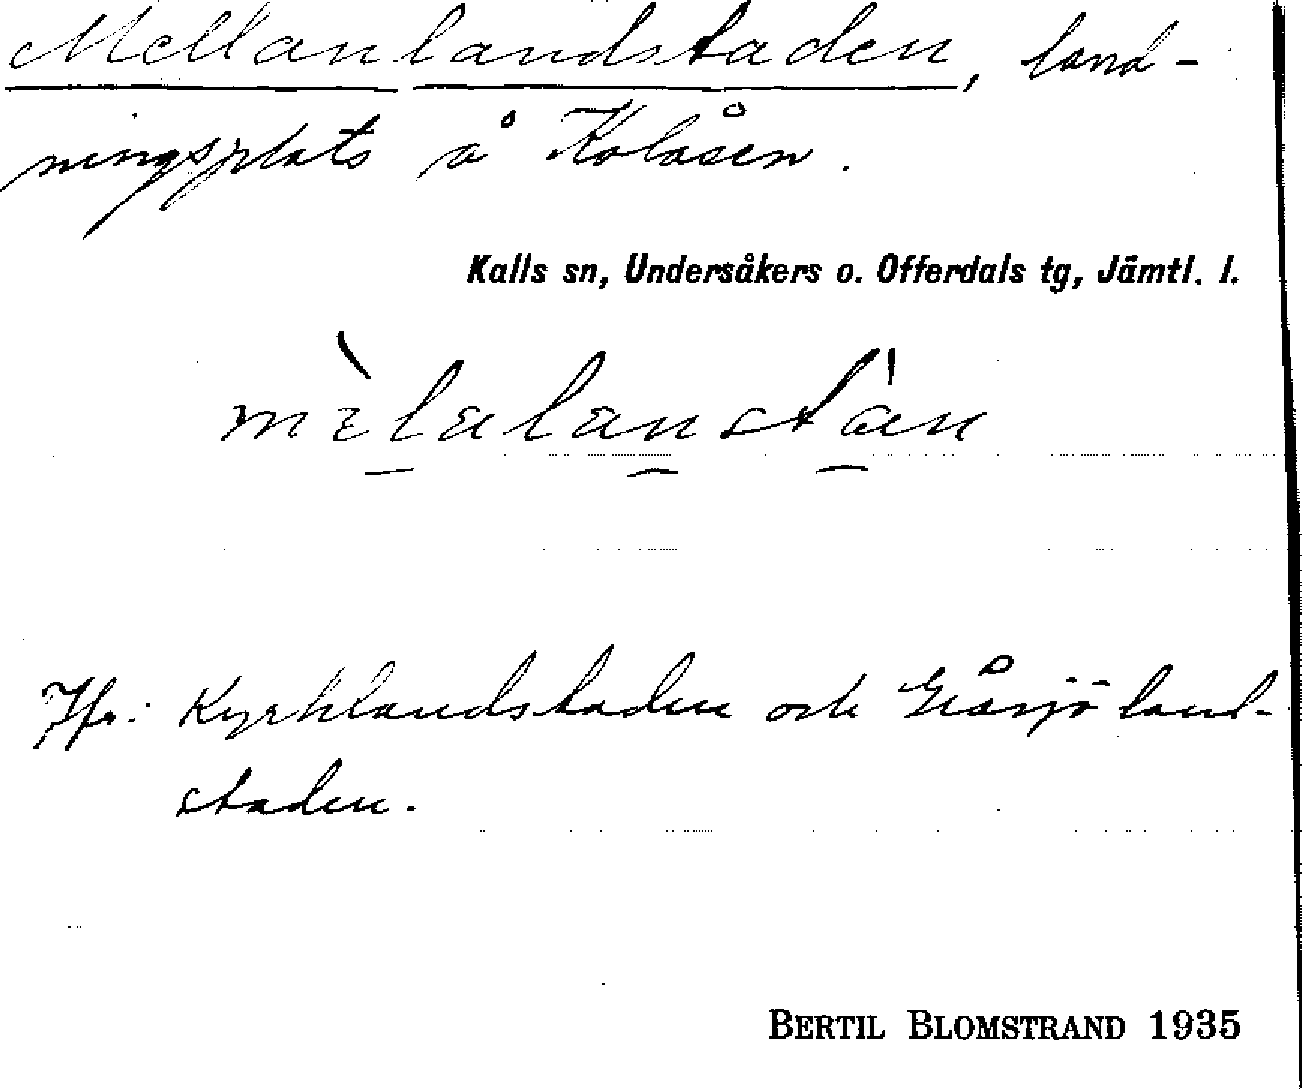 Mellanlandstaden, land-
ningsplats å Kolåsen.
Kalls sn, Undersåkers o. Offerdals tg, Jämtl. l.
Jfr: Kyrklandstaden och Gåsjöland-
staden.
BERTIL BLOMSTRAND 1935